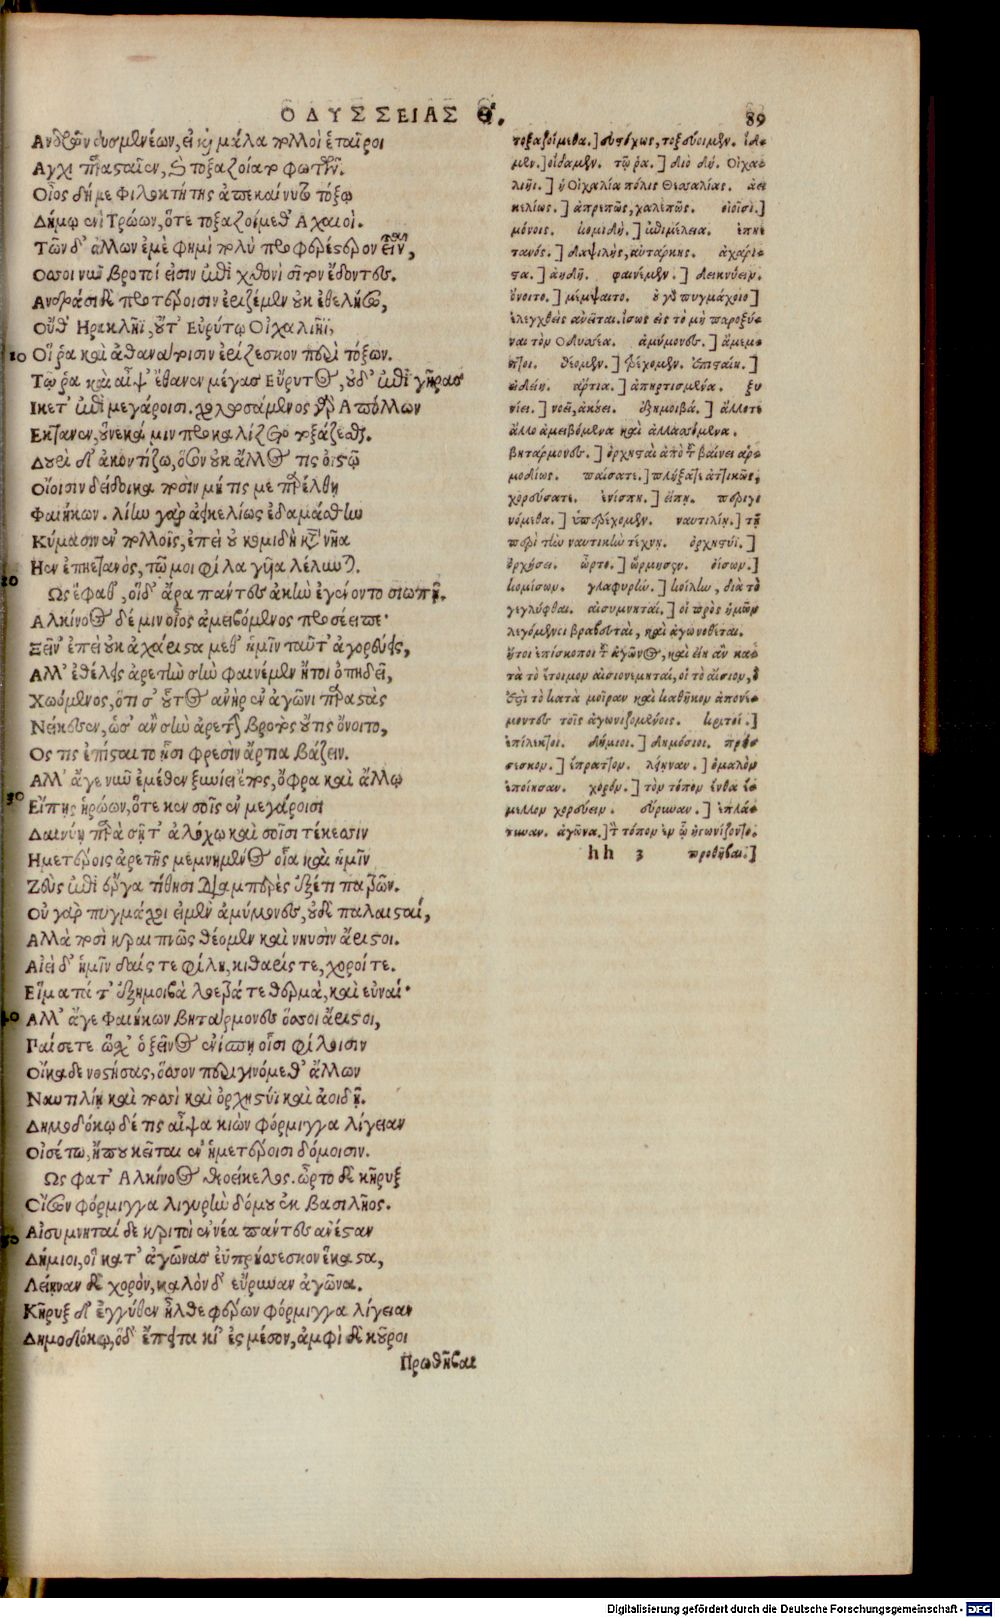 ΟΔΥΣΣΕΙΑΣ Θ. 89
Ανδρῶν δυσμενέων, εἰ καὶ μάλα πολλοὶ ἑταῖροι
Αγχι παρασταῖεν, καὶ τοξαζοίατο φωτῶν.
Οἶος δή με Φιλοκτήτης ἀπεκαίνυτο τόξῳ
Δήμῳ ἐνὶ Τρώων, ὅτε τοξαζοίμεθ' Αχαιοί.
Τῶν δ' ἄλλων ἐμὲ φημὶ πολὺ προφερέστερον εἶναι,
Οσσοι νῦν βροτοί εἰσιν ἐπὶ χθονὶ σῖτον ἔδοντες.
Ανδράσι δὲ προτέροισιν ἐριζέμεν οὐκ ἐθελήσω,
Οὔθ' Ηρακλῆϊ, οὔτ' Εὐρύτῳ Οἰχαλιῆϊ,
10 Οἵ ῥα καὶ ἀθανάτοισιν ἐρίζεσκον περὶ τόξων.
Τῷ ῥα καὶ αἶψ' ἔθανεν μέγας Εὔρυτος, οὐδ' ἐπὶ γῆρας
Ικετ' ἐπὶ μεγάροισι. χολωσάμενος γὰρ Απόλλων
Εκτανεν, οὕνεκά μιν προκαλίζετο τοξάζεσθαι.
Δουρὶ δ' ἀκοντίζω, ὅσον οὐκ ἄλλος τις ὀϊστῷ
Οἴοισιν δείδοικα ποσὶν μή τις με παρέλθῃ
Φαιήκων. λίην γὰρ ἀεικελίως ἐδαμάσθην
Κύμασιν ἐν πολλοῖς, ἐπεὶ οὐ κομιδὴ κατὰ νῆα
Ηεν ἐπηετανός, τῷ μοι φίλα γυῖα λέλυνται.
20 Ως ἔφαθ', οἱ δ' ἄρα πάντες ἀκὴν ἐγένοντο σιωπῇ.
Αλκίνοος δέ μιν οἶος ἀμειβόμενος προσέειπε·
Ξεῖν' ἐπεὶ οὐκ ἀχάριστα μεθ' ἡμῖν ταῦτ' ἀγορεύεις,
Αλλ' ἐθέλεις ἀρετὴν σὴν φαινέμεν ἥ τοι ὀπηδεῖ,
Χωόμενος, ὅτι σ' οὗτος ἀνὴρ ἐν ἀγῶνι παραστὰς
Νείκεσεν, ὡς ἂν σὴν ἀρετὴν βροτὸς οὔτις ὄνοιτο,
Ος τις ἐπίσταιτο ᾗσι φρεσὶν ἄρτια βάζειν.
Αλλ' ἄγε νῦν ἐμέθεν ξυνίει ἔπος, ὄφρα καὶ ἄλλῳ
30 Εἴπῃς ἡρώων, ὅτε κεν σοῖς ἐν μεγάροισι
Δαινύῃ παρὰ σῇ τ' ἀλόχῳ καὶ σοῖσι τέκεσσιν
Ημετέροις ἀρετῆς μεμνημένος οἷα καὶ ἡμῖν
Ζεὺς ἐπὶ ἔργα τίθησι διαμπερὲς ἐξέτι πατρῶν.
Οὐ γὰρ πυγμάχοι εἰμὲν ἀμύμονες, οὐδὲ παλαισταί,
Αλλὰ ποσὶ κραιπνῶς θέομεν καὶ νηυσὶν ἄριστοι.
Αἰεὶ δ' ἡμῖν δαίς τε φίλη, κίθαρίς τε, χοροί τε.
Εἵματά τ' ἐξημοιβὰ λοετρά τε θερμὰ, καὶ εὐναί·
40 Αλλ' ἄγε Φαιήκων βητάρμονες ὅσσοι ἄριστοι,
Παίσατε ὥς χ' ὁ ξεῖνος ἐνίσπῃ οἷσι φίλοισιν
Οἴκαδε νοστήσας, ὅσσον περιγινόμεθ' ἄλλων
Ναυτιλίῃ καὶ ποσὶ καὶ ὀρχηστύϊ καὶ ἀοιδῇ.
Δημοδόκῳ δέ τις αἶψα κιὼν φόρμιγγα λίγειαν
Οἰσέτω, ἥ που κεῖται ἐν ἡμετέροισι δόμοισιν.
Ως φατ' Αλκίνοος θεοείκελος. ὦρτο δὲ κῆρυξ
Οἴσων φόρμιγγα λιγυρὴν δόμου ἐκ βασιλῆος.
50 Αἰσυμνηταί δὲ κριτοὶ ἐννέα πάντες ἀνέσταν
Δήμιοι, οἳ κατ' ἀγῶνας ἐῢ πρήσσεσκον ἕκαστα,
Λείηναν δὲ χορόν, καλὸν δ' εὔρυναν ἀγῶνα.
Κῆρυξ δ' ἐγγύθεν ἦλθε φέρων φόρμιγγα λίγειαν
Δημοδόκῳ, ὁ δ' ἔπειτα κί' ἐς μέσον, ἀμφὶ δὲ κοῦροι
Πρωθῆβαι
τοξαζοίμεθα.] εὐστόχως, τοξεύοιμεν. ἴδ-
μεν.] οἴδαμεν. τῷ ῥα.] διὸ δή. Οἰχα-
λιῆι.] ἡ Οἰχαλία πόλις Θεσσαλίας. ἀει
κελίως.] ἀπρεπῶς, χαλεπῶς. οἰοῖσι.]
μόνοις. κομιδή.] ἐπιμέλεια. ἐπηε
τανός.] δαψιλὴς, αὐτάρκης. ἀχάρι-
τα.] ἀηδῆ. φαινέμεν.] δεικνύειν.
ὄνοιτο.] μέμψαιτο. οὐ γὰρ πυγμάχοιο]
ἐλεγχθεὶς ἀνεῖται. ἴσως εἰς τὸ μὴ παροξύ-
ναι τὸν Οδυσσέα. ἀμύμονες.] ἄμεμ-
πτοι. θέομεν.] τρέχομεν.
ἄρτια.] ἀπηρτισμένα. ξυ
νίει.] νοεῖ, ἀκούει. ἐξημοιβά.] ἄλλοτε
ἄλλο ἀμειβόμενα καὶ ἀλλασσόμενα.
βητάρμονες.] ὀρχησταὶ ἀπὸ τοῦ βαίνει ἁρ-
μοδίως. παίσατε.]
χορεύσατε. ἐνίσπῃ.] εἴπῃ. περιγι
νόμεθα.] ὑπερέχομεν. ναυτιλίῃ.] τῇ
περὶ τὴν ναυτικὴν τέχνῃ. ὀρχηστύι.]
ὀρχήσει. ὦρτο.] ὥρμησεν. οἴσων.]
κομίσων. γλαφυρήν.] κοίλην, διὰ τὸ
γεγλύφθαι. αἰσυμνηταί.] οἱ πρὸς ἡμῶν
λεγόμενοι βραβευταὶ, καὶ ἀγωνοθέται.
ἤτοι ἐπίσκοποι τοῦ ἀγῶνος, καὶ εἴη ἂν κα-
τὰ τὸ ἕτοιμον αἰσιονεμηταί, οἱ τὸ αἴσιον, ὅ
ἐστι τὸ κατὰ μοῖραν καὶ καθῆκον ἀπονέ-
μοντες τοῖς ἀγωνιζομένοις. κριτοί.]
ἐπίλεκτοι. δήμιοι.] δημόσιοι. πρήσ
σεσκον.] ἔπραττον. λείηναν.] ὁμαλὸν
ἐποίησαν. χορόν.] τὸν τόπον ἔνθα ἔ-
μελλον χορεύειν. εὔρυναν.] ἐπλά-
τυναν. ἀγῶνα.] τὸν τόπον ἐν ᾧ ἠγωνίζοντο.
hh 3 πρωθῆβαι.]
Digitalisierung gefördert durch die Deutsche Forschungsgemeinschaft - DFG